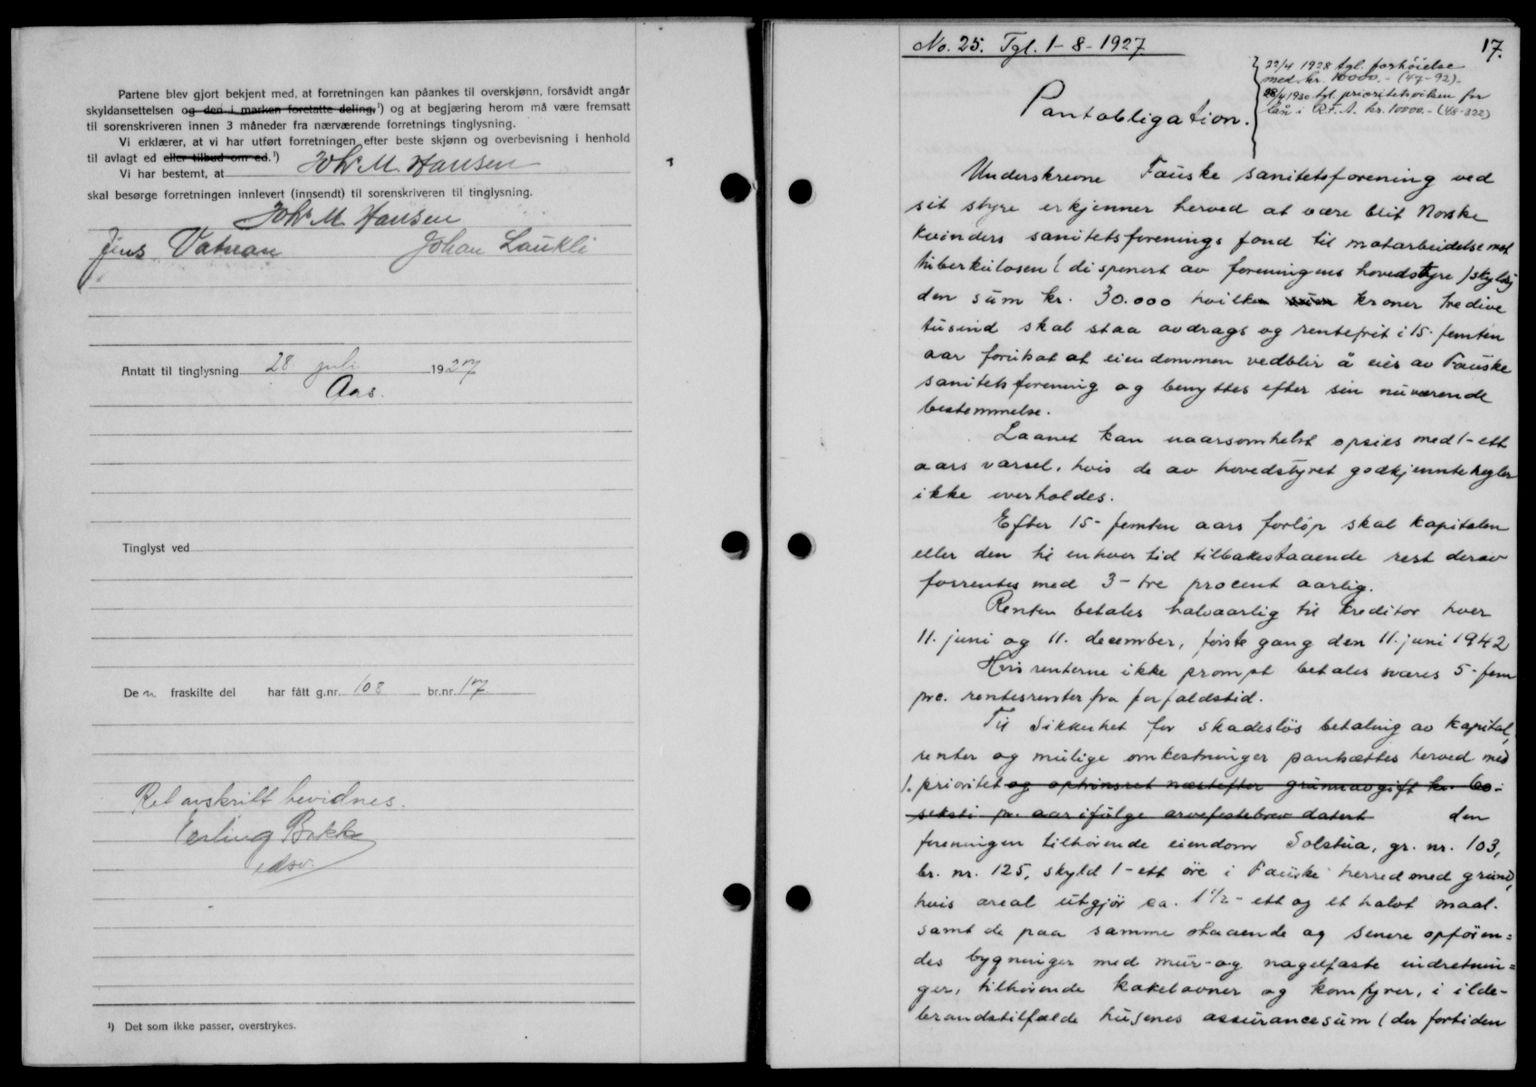 Partene blev gjort bekjent med, at forretningen kan påankes til overskjønn, forsåvidt angår
skyldansettelsen og den i marken foretatte deling,¹) og at begjæring herom må være fremsatt
til sorenskriveren innen 3 måneder fra nærværende forretnings tinglysning.
Vi erklærer, at vi har utført forretningen efter beste skjønn og overbevisning i henhold
til avlagt ed eller tilbud om ed.¹)
Vi har bestemt, at Johs M. Hansen
skal besørge forretningen innlevert (innsendt) til sorenskriveren til tinglysning.
Johs M Hansen
Jens Vatnan Johan Laukli
Antatt til tinglysning 28 juli 1927
Aas.
Tinglyst ved
De n fraskilte del har fått g.nr. 108 br.nr. 17
Ret avskrift bevidnes.
Erling Bakke
edsv.
¹) Det som ikke passer, overstrykes.
No. 25. Tgl. 1-8-1927
17.
22/4 1928 tgl. forhöielse
med kr. 10000.- (47-92).
28/4 1930 tgl. prioritetsviken for
lån i R.F.A. kr. 10000.- (48-322)
Pantobligation.
Underskrevne Fauske sanitetsforening ved
sit styre erkjenner herved at være blit Norske
kvinders sanitetsforenings fond til motarbeidelse mot
tuberkulosen (disponert av foreningens hovedstyre) skyldig
den sum kr. 30.000 hvilken sum kroner tredive
tusend skal staa avdrags og rentefrit i 15- femten
aar forutsat at eiendommen vedblir å eies av Fauske
sanitetsforening og benyttes efter sin nuværende
bestemmelse.
Laanet kan naarsomhelst opsies med 1- ett
aars varsel, hvis de av hovedstyret godkjennte regler
ikke overholdes.
Efter 15- femten aars forløp skal kapitalen
eller den til enhver tid tilbakestaaende rest derav
forrentes med 3- tre procent aarlig.
Renten betales halvaarlig til kreditor hver
11. juni og 11. december, förste gang den 11. juni 1942
Hvis renterne ikke prompt betales svares 5- fem
pre. rentesrenter fra forfaldstid.
Til Sikkerhet for skadeslös betaling av kapital,
renter og mulige omkostninger pantsættes herved med
1. prioritet og optrinsret næstefter grunnavgift kr. 60-
seksti pr. aar ifölge arvefestebrev datert den
foreningen tilhörende eiendom Solstua, gr. nr. 103,
br. nr. 125, skyld 1- ett öre i Fauske herred med grund,
hvis areal utgjör ca. 1 1/2- ett og et halvt maal.
samt de paa samme staaende og senere opfören=
des bygninger med mur- og nagelfaste indretnin=
ger, tilhörende kakelovner og komfyrer, i ilde-
brandstilfælde husenes assurancesum (der fortiden